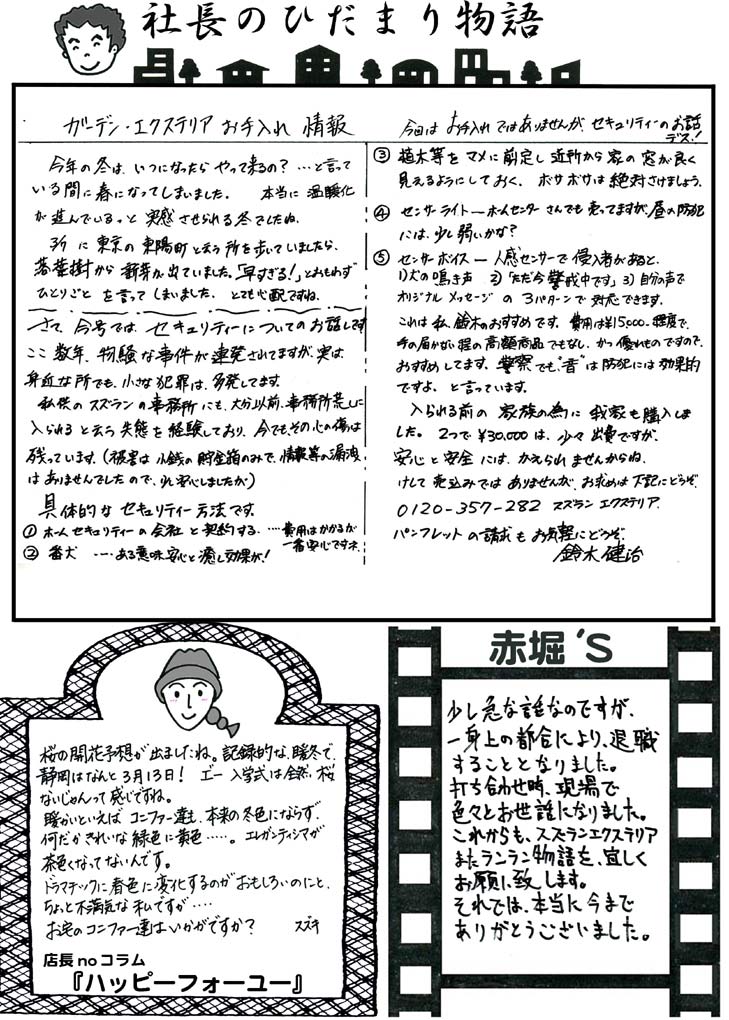 社長のひだまり物語
ガーデン・エクステリア お手入れ 情報
今年の冬は、いつになったら やって来るの？…と言って
いる間に春になってしまいました。 本当に 温暖化
が進んでいるっと 実感させられる冬でしたね。
東京の 東陽町と云う所を歩いていましたら、
落葉樹から 新芽が出ていました。「早すぎる！」とおもわず
ひとりごと を言って しまいました。 とても心配ですね。
さて、今号では、セキュリティーについてのお話しです
ここ 数年、物騒な事件が 連発されてますが、実は、
身近な所でも、小さな犯罪は、多発してます。
私供の スズランの事務所にも、大分以前、事務所荒しに
入られると云う 失態を経験しており、今でも、その心の傷は
残っています。(被害は 小銭の貯金箱のみで、情報等の漏洩
はありませんでしたので、少し安心しましたが)
具体的な セキュリティー方法です。
① ホームセキュリティーの会社 と契約する。…費用はかかるが
一番安心ですネ。
② 番犬 …ある意味、安心と癒し効果が！
今回は お手入れではありませんが、セキュリティーのお話
デス！
③ 植木等を マメに 剪定し 近所から 家の窓が良く
見えるようにしておく。ボサボサは絶対さけましょう。
④ センサーライト—ホームセンターさんでも売ってますが、昼の防犯
には、少し弱いかな？
⑤ センサーボイス—人感センサーで侵入者があると、
1)犬の鳴き声 2)「ただ今警戒中です」 3)自分の声で
オリジナルメッセージ の 3パターンで 対応できます。
これは私、鈴木のおすすめです。費用は¥15,000-程度で、
手の届かない程の高額商品でもなし、かつ優れものですので、
おすすめしてます。警察でも"音"は防犯には効果的
ですよ、と言っています。
入られる前の 家族の為に 我家も購入しま
した。2つで ¥30,000は、少々出費ですが、
安心と安全 には、かえられ ませんからね。
けして 売込みでは ありませんが、お求めは下記にどうぞ。
0120-357-282 スズラン エクステリア.
パンフレット の請求も お気軽にどうぞ.
鈴木健治
桜の開花予想が出ましたね。記録的な、暖冬で、
静岡はなんと3月13日！ エー入学式は全然、桜
ないじゃんって感じですね。
暖かいといえば コニファー達も、本来の冬色にならず、
何だかきれいな緑色に黄色……。エレガンティシマが
茶色くなってないんです。
ドラマチックに春色に変化するのがおもしろいのにと、
ちょっと不満気な私ですが……
お宅のコニファー達はいかがですか？ スズキ
店長noコラム
『ハッピーフォーユー』
赤堀'S
少し急な話なのですが、
一身上の都合により、退職
することとなりました。
打ち合わせ時、現場で
色々とお世話になりました。
これからも、スズランエクステリア
またランラン物語を、宜しく
お願い致します。
それでは、本当に今まで
ありがとうございました。